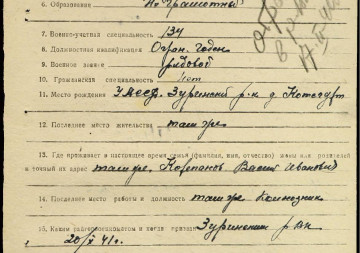 6. Образование Не грамотный
7. Военно-учетная специальность 134
8. Должностная квалификация Огран. годен
9. Военное звание рядовой
10. Гражданская специальность нет
11. Место рождения УАССР. Зуринский р-н д.
12. Последнее место жительства там же
13. Где проживает в настоящее время семья (фамилия, имя, отчество) жены или родителей
и точный их адрес там же, Корепанов Иванович
14. Последнее место работы и должность там же Колхозник
15. Каким райвоенкоматом и когда призван Зуринским рвк
20/X 41 г.